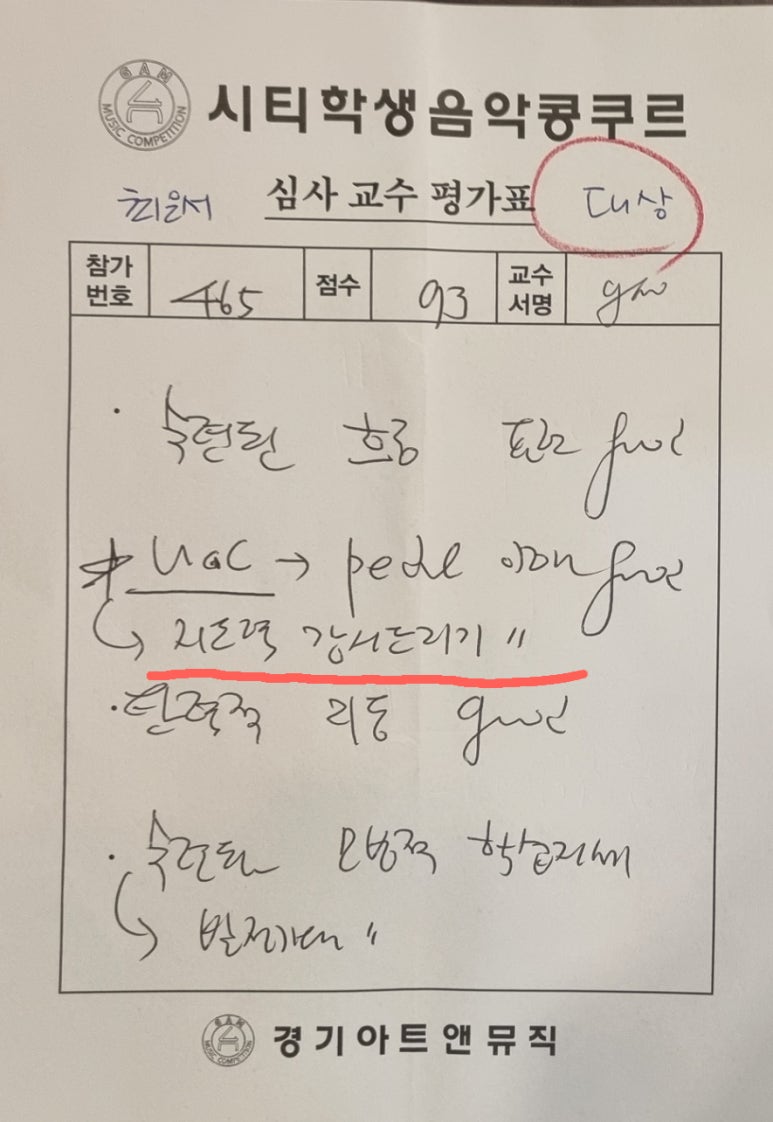 SAM
MUSIC COMPETITION
시티학생음악콩쿠르
최윤서 심사 교수 평가표 대상
참가번호 465 점수 93 교수서명
· 숙련된 흐름 표현 good
* → pedal 이해 good
지도력 감사드리기 〃
· 탄력적 리듬 good
· 숙련된 모범적 학습자세
발전기대 〃
SAM
MUSIC COMPETITION
경기아트앤뮤직